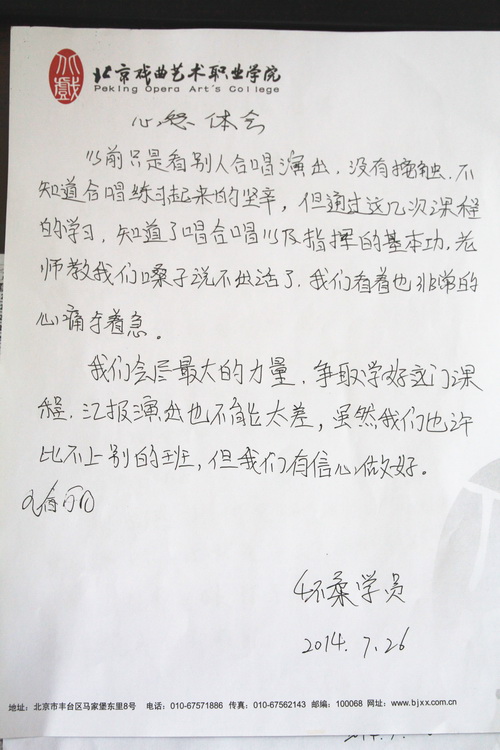 北戏
北京戏曲艺术职业学院
Peking Opera Art's College
心得体会
以前只是看别人合唱演出，没有接触.不
知道合唱练习起来的坚辛，但通过这几次课程
的学习，知道了唱合唱以及指挥的基本功.老
师教我们嗓子说不出话了.我们看着也非常的
心痛 着急。
我们会尽最大的力量，争取学好这门课
程.汇报演出也不能太差，虽然我们也许
比不上别的班，但我们有信心做好。
怀柔学员
2014.7.26
地址：北京市丰台区马家堡东里8号 电话：010-67571886 传真：010-67562143 邮编：100068 网址：www.bjxx.com.cn